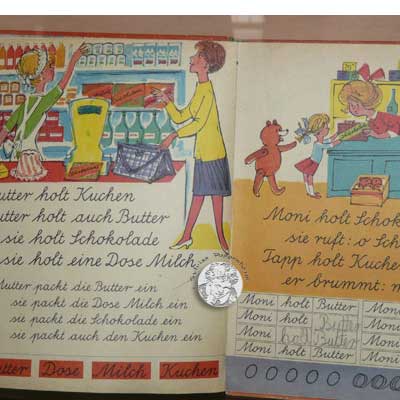 Mutter holt Kuchen
Mutter holt auch Butter
sie holt Schokolade
sie holt eine Dose Milch
Mutter packt die Butter ein
sie packt die Dose Milch ein
sie packt die Schokolade ein
sie packt auch den Kuchen ein
Butter Dose Milch Kuchen
Moni holt
sie ruft: o
Tapp holt
er brummt:
Moni holt Butter Moni
Moni holt Butter Moni
Moni holt Butter Moni
Moni holt Butter Moni